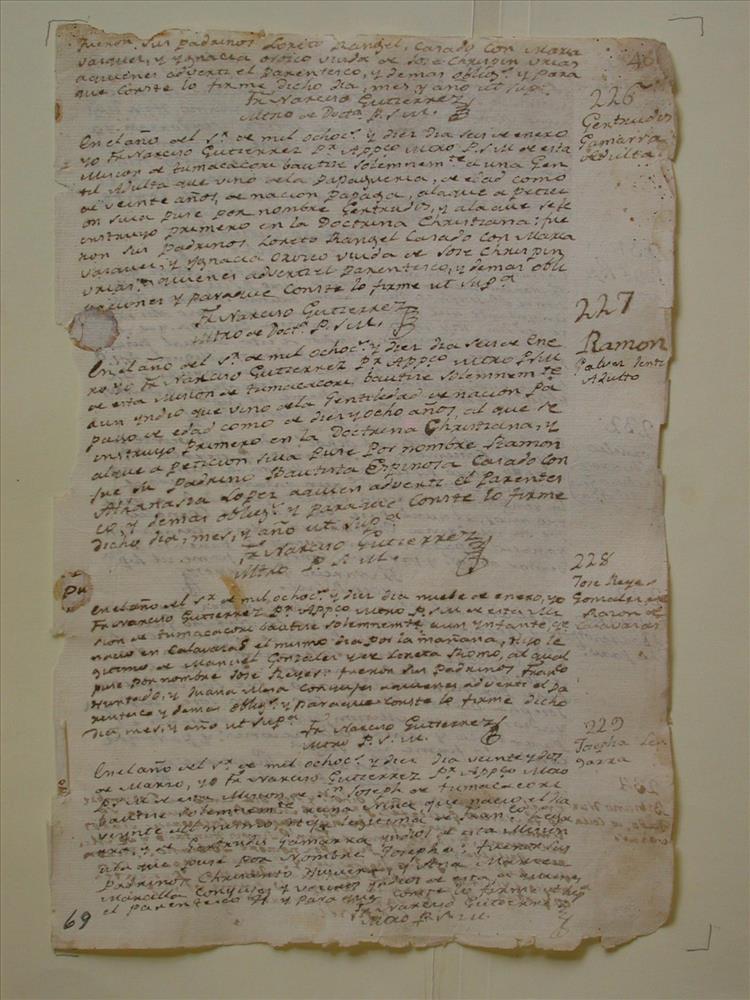 fueron sus padrinos Loreto Rangel, Casado con Maria
Vasquez, y Ygnacia Orosco viuda de Jose Chrispin Urias
aquienes adverti el Parentesco, y demas oblig.s y para
que conste lo firme dicho dia, mes, y año ut sup.a
Fr Narciso Gutierrez
Mtro de Doct.a P. S. M.
46
226
Gertrudis
Gamarra
Adulta
En el año del S.r de mil ochoc.s y diez dia seis de enero
yo Fr. Narciso Gutierrez P.r App.co Mtro P. S. M de esta
Mision de tumacacori bautise solemnem.te a una Gen
til Adulta que vino de la Papagueria, de edad como
de veinte años, de nacion Papaga, alaque a petici
on suia puse por nombre Gertrudis, y ala que se le
instruyo primero en la Doctrina Christiana: fue
ron sus Padrinos Loreto Rangel Casado con Maria
Vasquez, y Ygnacia Orosco viuda de Jose Chrispin
Urias: aquienes adverti el parentesco, y demas obli
gaciones y paraque conste lo firme ut sup.a
Fr Narciso Gutierrez
Mtro de Doct.a P. S. M.
227
Ramon
Adulto
En el año del S.r de mil ochoc.s y diez dia seis de Ene
ro yo Fr. Narciso Gutierrez P.r App.co Mtro P. S. M
de esta Mision de tumacacori bautise solemnem.te
a un yndio que vino de la Gentilidad de nacion Pa
pago de edad como de diez y ocho años, al que se
instruyo primero en la Doctrina Christiana, y
alque a peticion suia puse por nombre Ramon
fue su Padrino Bautista Espinosa Casado con
Athanasia Lopez aquien adverti el Parentes
co, y demas oblig.s y paraque conste lo firme
dicho dia, mes, y año ut sup.a
Fr Narciso Gutierrez
Mtro P. S. M.
228
Jose Reyes
Gonzales
Razon de
Calavasas
En el año del S.r de mil ochoc.s y diez dia nueve de enero, yo
Fr. Narciso Gutierrez P.r App.co Mtro P. S. M de esta Mi
sion de tumacacori bautise solemnem.te a un ynfante, q.e
nacio en Calavasas el mismo dia por la mañana, hijo le
gitimo de Manuel Gonzales y de Loreta Romo, al qual
puse por nombre José Reyes: fueron sus Padrinos Fran.co
Hurtado, y Juana Mesa Conyuges aquienes adverti el Pa
rentesco y demas oblig.s y paraque conste lo firme dicho
dia, mes, y año ut sup.a
Fr Narciso Gutierrez
Mtro P. S. M.
229
Josepha
En el año del S.r de mil ochoc.s y diez dia veinte y dos
de Marzo, yo Fr Narciso Gutierrez P.r App.co Mtro
P. S. M de esta Mision de S.n Joseph de tumacacori
bautise solemnem.te a una Niña que nacio el dia
veinte del mismo, hija legitima de Juan
y de Gertrudis Gamarra yndios de esta Mision
ala que puse por Nombre Josepha: fueron sus
Padrinos y Ana Maria
Conyuges y vecinos yndios de esta, aquienes
el parentesco y para que conste lo firme
Fr Narciso Gutierrez
Mtro P. S. M.
69